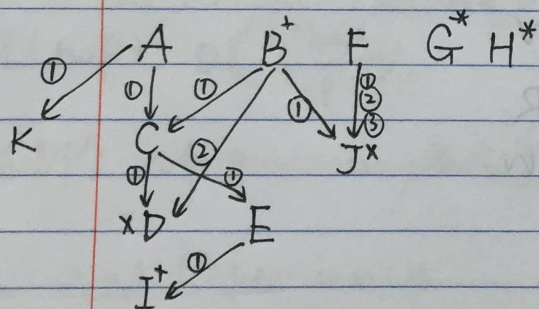 A B⁺ F G* H*
① ① ① ① ①
②
③
K C ② J×
① ①
×D E
①
I⁺